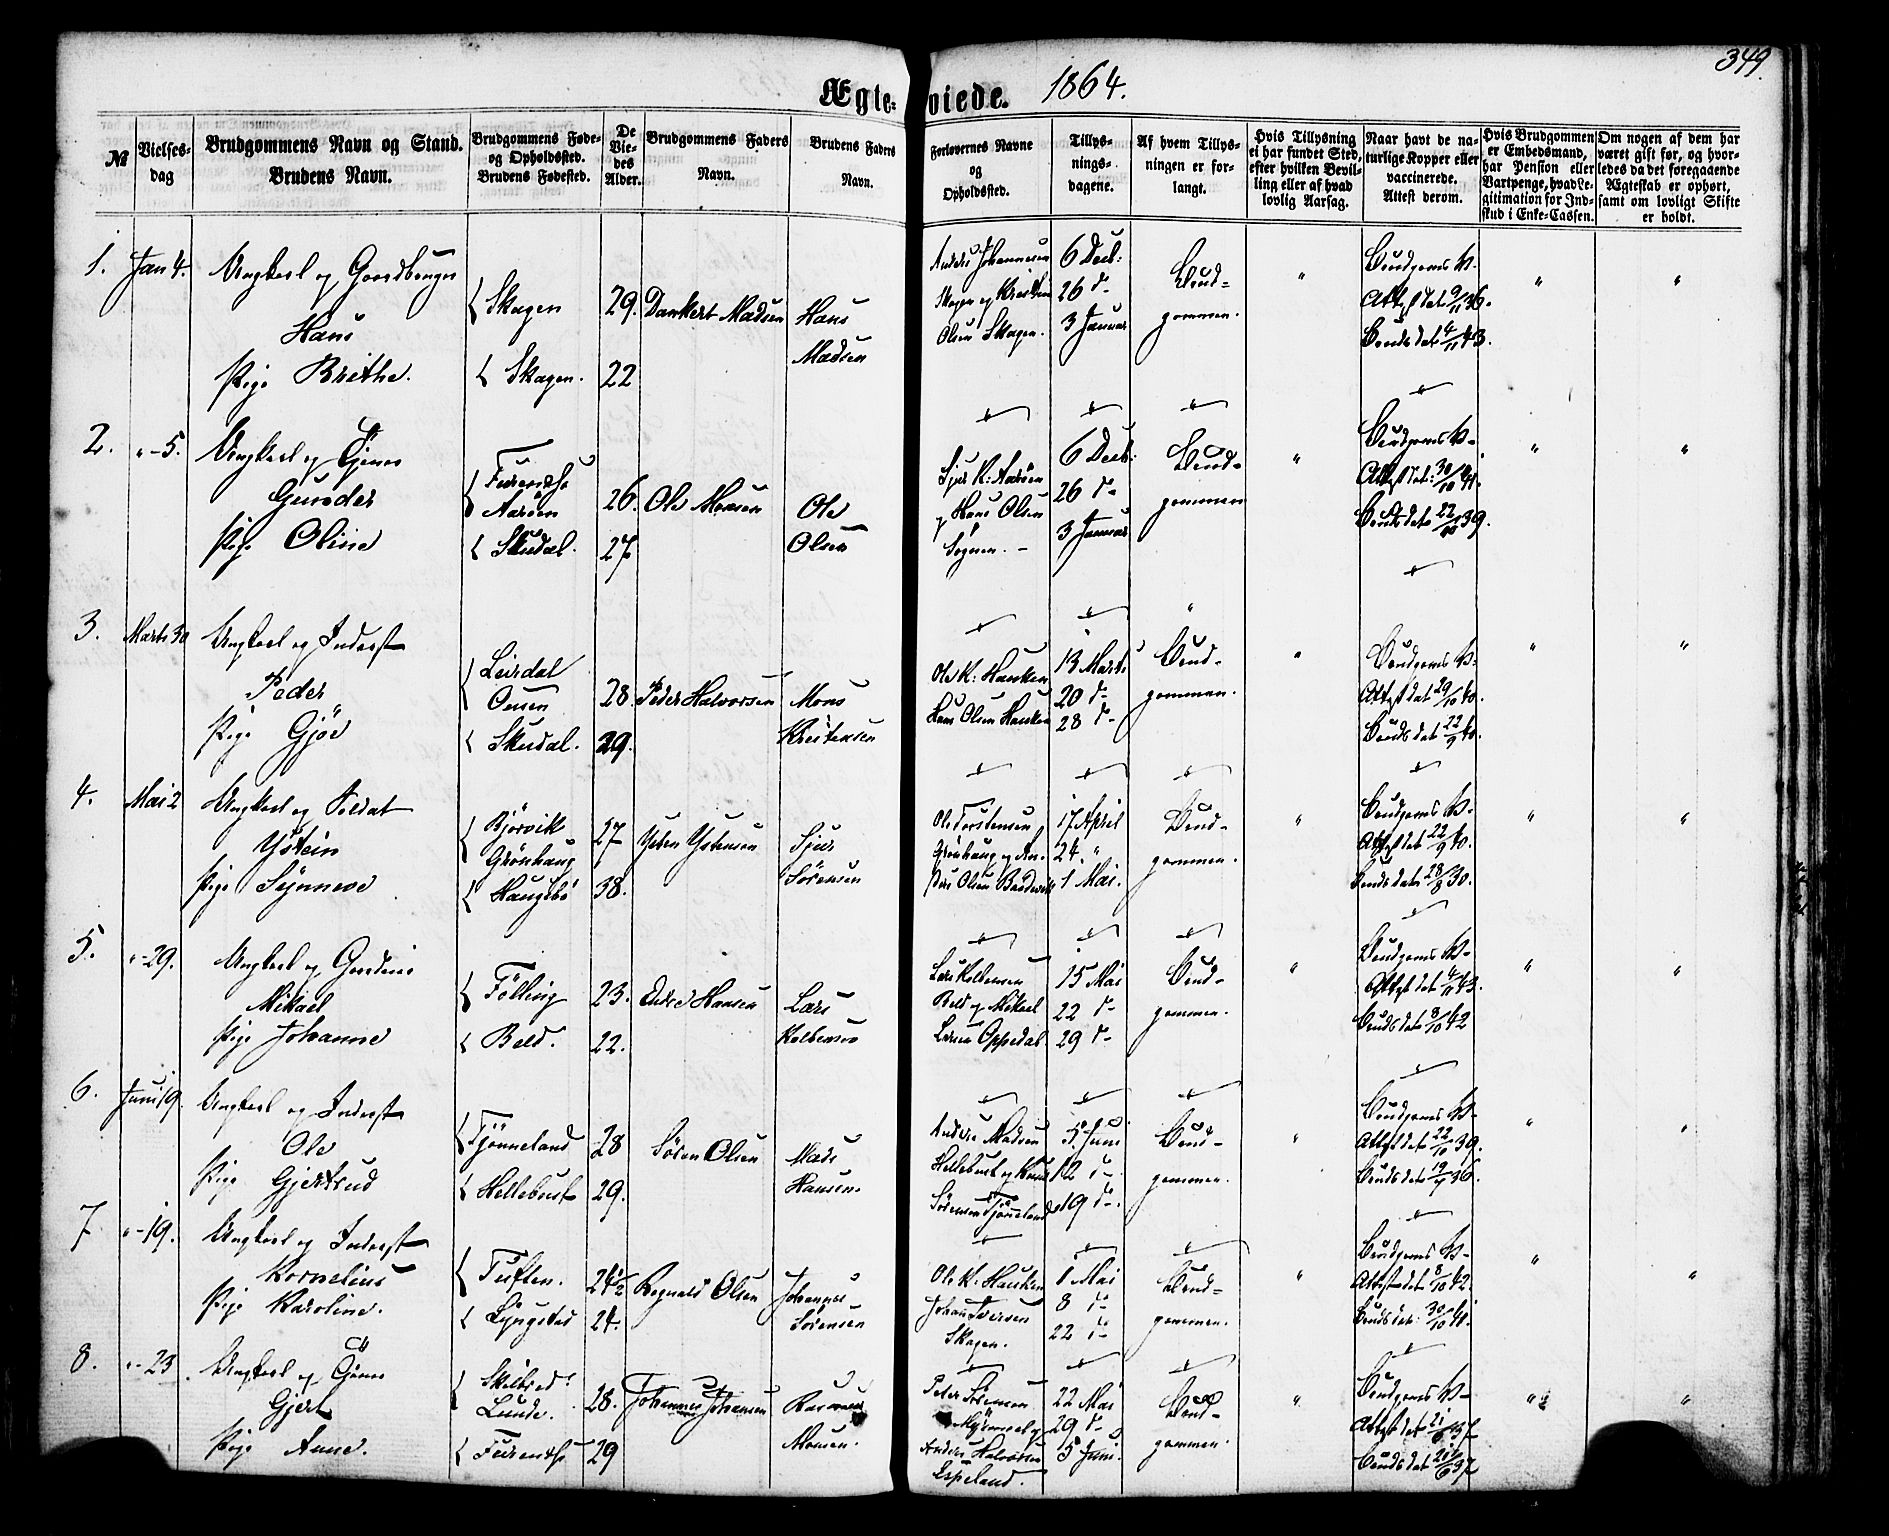 349.
Ægteviede. 1864.
№
Vielsesdag
Brudgommens Navn og Stand.
Brudens Navn.
Brudgommens Føde- og Opholdssted.
Brudens Fødested.
De Viedes Alder.
Brudgommens Faders Navn.
Brudens Faders Navn.
Forlovernes Navne og Opholdssted.
Tillysningsdagene.
Af hvem Tillysningen er forlangt.
Hvis Tillysning ei har fundet Sted, efter hvilken Bevilling eller af hvad lovlig Aarsag.
Naar havt de naturlige Kopper eller vaccinerede. Attest derom.
Hvis Brudgommen er Embedsmand, har Pension eller Vartpenge, hvad Legitimation for Indskud i Enke-Cassen.
Om nogen af dem har været gift før, og hvorledes da det foregaaende Ægteskab er ophørt, samt om lovligt Skifte er holdt.
1. Jan 4. Ungkarl og Gaardbruger
Hans Skagen 29. Dankert Madsen Hans Madsen
Pige Brithe. Skagen. 22
Anders Johannesen Skagen og Kristen Olsen Skagen.
6 Decb: 26 d- 3 Januar
Brudgommen. " Brudgoms V- Attest dat 9/11 36. Bruds dat 4/11 43. " "
2. "-5. Ungkarl og
Gunder Aarsen 26. Ole Monsen Ole Olsen
Pige Oline Skudal. 27
Sjur K: Aarsen og Hans Olsen Sognen. -
6 Decb: 26 d- 3 Januar
Brudgommen " Brudgoms V- Attest dat: 30/10 41. Bruds dat 22/10 39. " "
3. Marts 30 Ungkarl og Inderst
Peder Leirdal 28. Peder Halvorsen Mons Kristensen
Pige Gjöe Skudal. 29.
Ole K: Hauken Hans Olsen Hauken
13 Marts 20 d- 28 d-
Brudgommen. " Brudgoms V- Attest dat 29/10 40. Bruds dat 22/9 40. " "
4. Mai 2 Ungkarl og Soldat
Ystein Bjørvik Grönhaug 27 Ysten Ystensen Sjur Sörensen
Pige Synneve Haugsbö 38.
Ole Torstensen Grönhaug og Anders Olsen
17 April 24. " 1 Mai.
Brudgommen. " Brudgoms V- Attest dat 22/9 40. Bruds dat 28/8 30. " "
5. "-29. Ungkarl og
Mikael Tölling 23. Endre Hansen Lars Kolbensen
Pige Johanne Beld. 22.
Lars Kolbensen Beld og Mikael Larsen Oppedal
15 Mai 22 d- 29 d-
Brudgommen. " Brudgoms V- Attest dat 4/11 43. Bruds dat 8/10 42 " "
6. Juni 19. Ungkarl og Inderst
Ole Tjönneland 28 Sören Olsen Mads Hansen.
Pige Gjertrud Hellebust 29.
Anders Madsen Hellebust og Knud Sörensen Tjönneland
5. Juni 12 d- 19 d-
Brudgommen. " Brudgoms V- Attest dat 22/10 39. Bruds dat 19/7 36. " "
7 "-19. Ungkarl og Inderst
Kornelius Tuften. 24½ Regnald Olsen Johannes Sörensen
Pige Karoline. Lyngstad 24.
Ole K: Hauken Johan Iversen Skagen.
1 Mai 8 d- 22 d-
Brudgommen. " Brudgoms V- Attest dat 8/10 42. Bruds dat: 30/10 41. " "
8. "-23 Ungkarl og
Gjert Skilbred Lunde. 28. Johannes Johansen Rasmus Monsen.
Pige Anne. 29
Peter Sörensen og Anders Halvorsen Espeland.
22 Mai 29 d- 5 Juni.
Brudgommen. " Brudgoms V- Attest dat Bruds dat " "